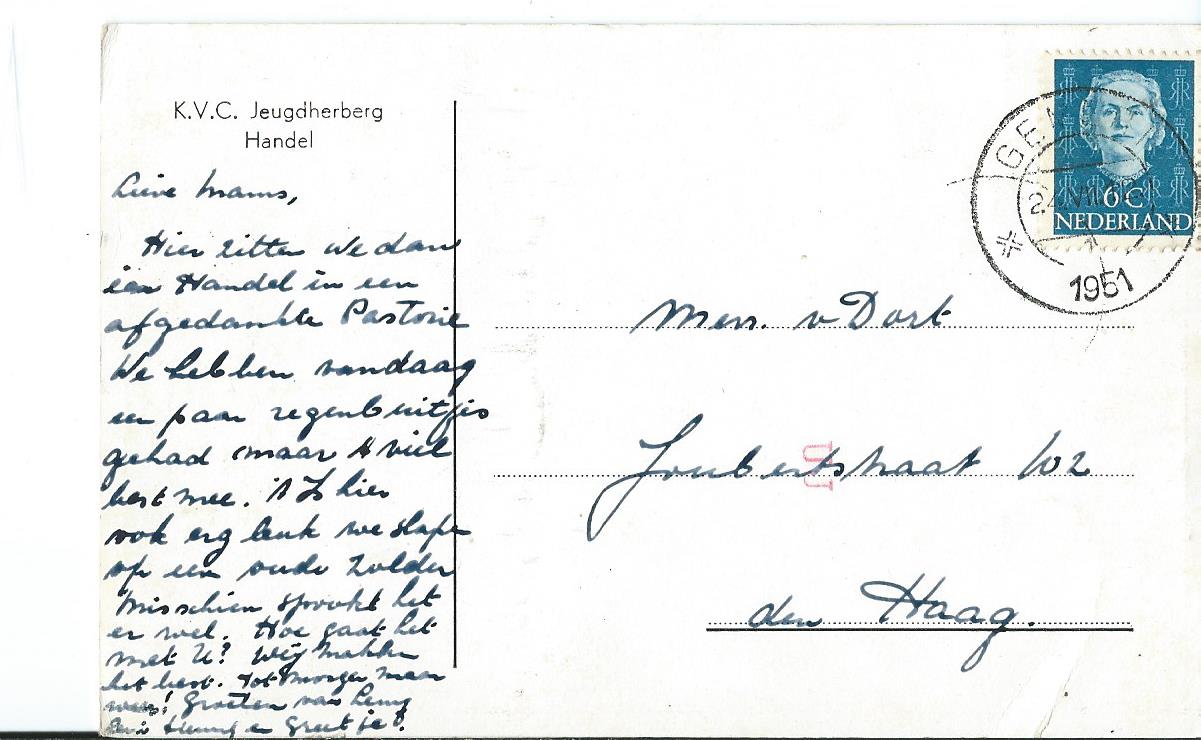 K.V.C. Jeugdherberg
Handel
Lieve Mams,
Hier zitten we dan
in Handel in een
afgedankte Pastorie
We hebben vandaag
een paar regenbuitjes
gehad maar 't viel
best mee. 't Is hier
ook erg leuk we slape
op een oude zolder
Misschien spookt het
er wel. Hoe gaat het
met U? Wij maken
het best. Tot morgen maar
weer! Groeten van
en Greetje!
GEM
1951
6C
NEDERLAND
Mevr. v Dort
Joubertstraat 102
den Haag.